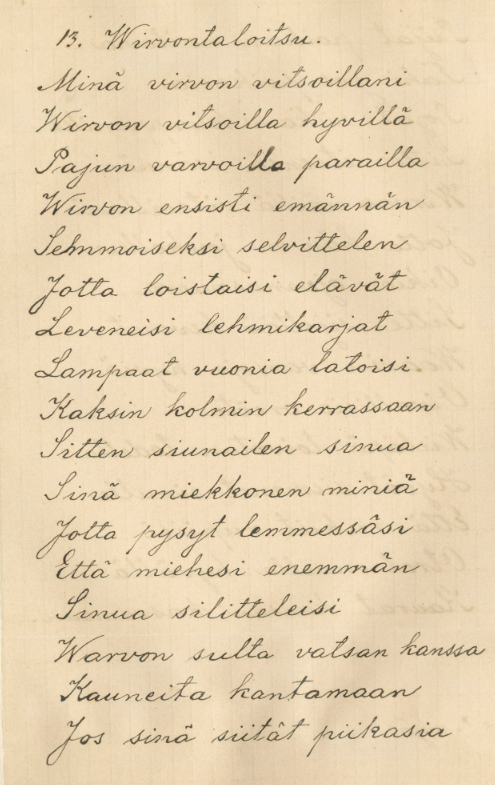 13. Wirvontaloitsu.
Minä virvon vitsoillani
Wirvon vitsoilla hyvillä
Pajun varvoilla parailla
Wirvon ensisti emännän
Semmoiseksi selvittelen
Jotta loistaisi elävät
Leveneisi lehmikarjat
Lampaat vuonia latoisi.
Kaksin kolmin kerrassaan
Sitten siunailen sinua
Sinä miekkonen miniä
Jotta pysyt lemmessäsi
Että miehesi enemmän
Sinua silitteleisi
Warvon sulta vatsan kanssa
Kauneita kantamaan
Jos sinä siität piikasia